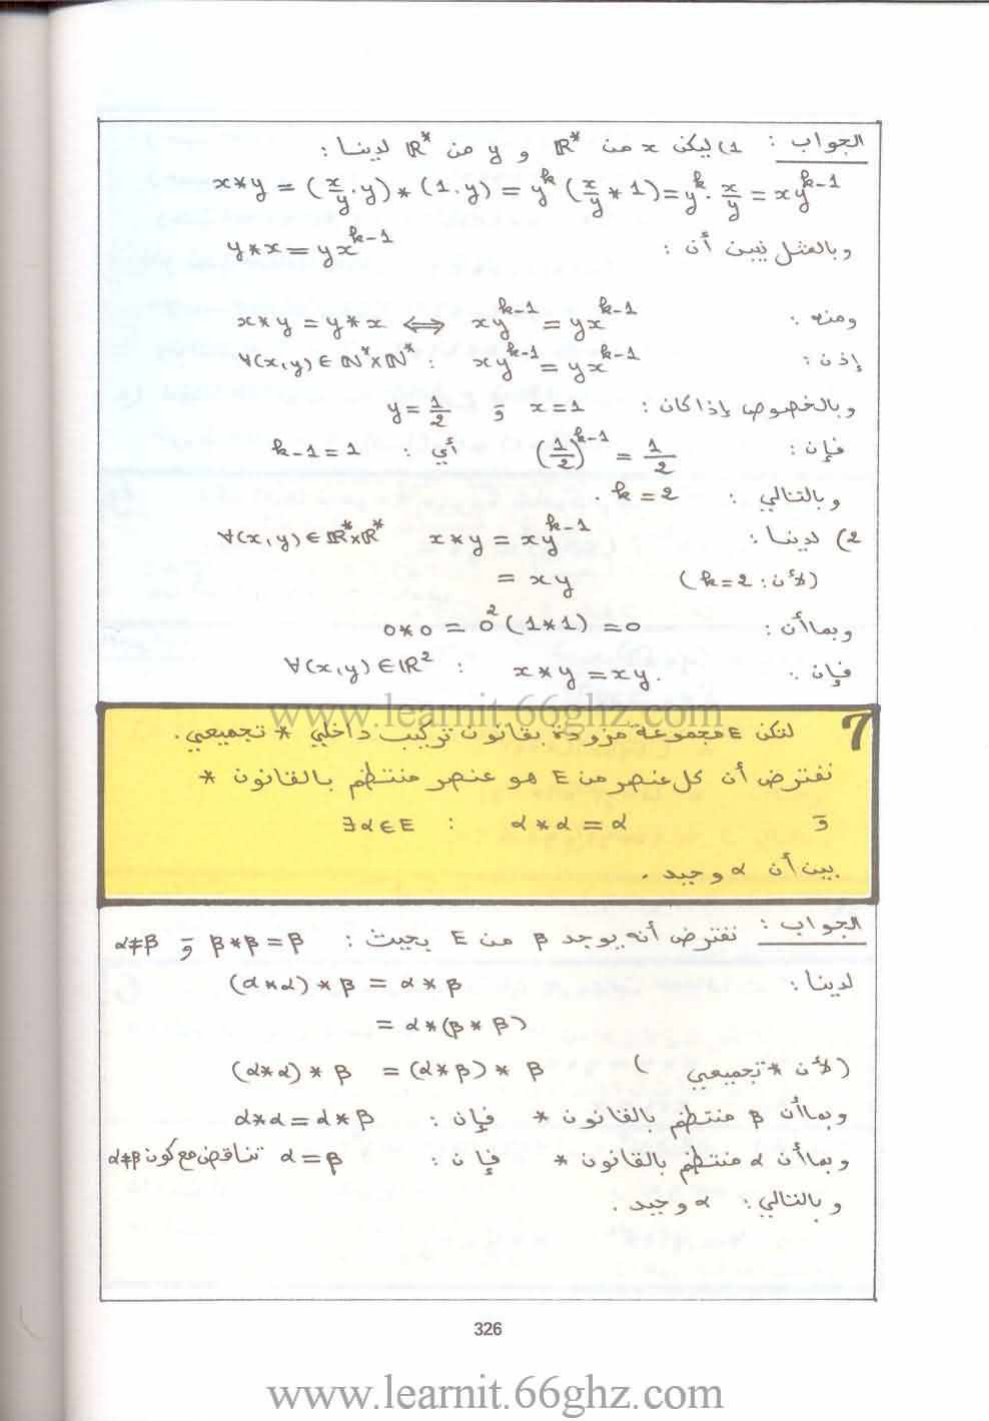 الجواب : 1) ليكن x من ℝ* و y من ℝ* لدينا :
x*y = (x/y . y) * (1.y) = y^k (x/y * 1) = y^k . x/y = xy^{k-1}
وبالمثل نبين أن : y*x = yx^{k-1}
ومنه : x*y = y*x ⟺ xy^{k-1} = yx^{k-1}
إذن : ∀(x,y) ∈ ℝ*×ℝ* : xy^{k-1} = yx^{k-1}
وبالخصوص إذا كان : x=1 و y = 1/2
فإن : (1/2)^{k-1} = 1/2 أي : k-1 = 1
وبالتالي : k = 2 .
2) لدينا : x*y = xy^{k-1} ∀(x,y) ∈ ℝ*×ℝ*
(لأن : k=2) = xy
وبما أن : 0*0 = 0²(1*1) = 0
فإن : x*y = xy. : ∀(x,y) ∈ ℝ²
www.learnit.66ghz.com
7 لتكن E مجموعة مزودة بقانون تركيب داخلي * تجميعي .
نفترض أن كل عنصر من E هو عنصر منتظم بالقانون *
و ∃α∈E : α*α = α
بين أن α وحيد .
الجواب : نفترض أنه يوجد β من E بحيث : β*β=β و α≠β
لدينا : (α*α)*β = α*β
= α*(β*β)
(لأن * تجميعي) (α*α)*β = (α*β)*β
وبما أن β منتظم بالقانون * فإن : α*α = α*β
وبما أن α منتظم بالقانون * فإن : α=β تناقض مع كون α≠β
وبالتالي : α وحيد .
326
www.learnit.66ghz.com